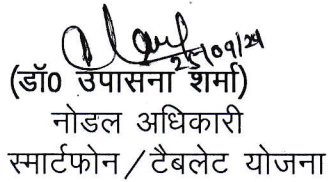 25/09/24
(डॉ0 उपासना शर्मा)
नोडल अधिकारी
स्मार्टफोन/टैबलेट योजना